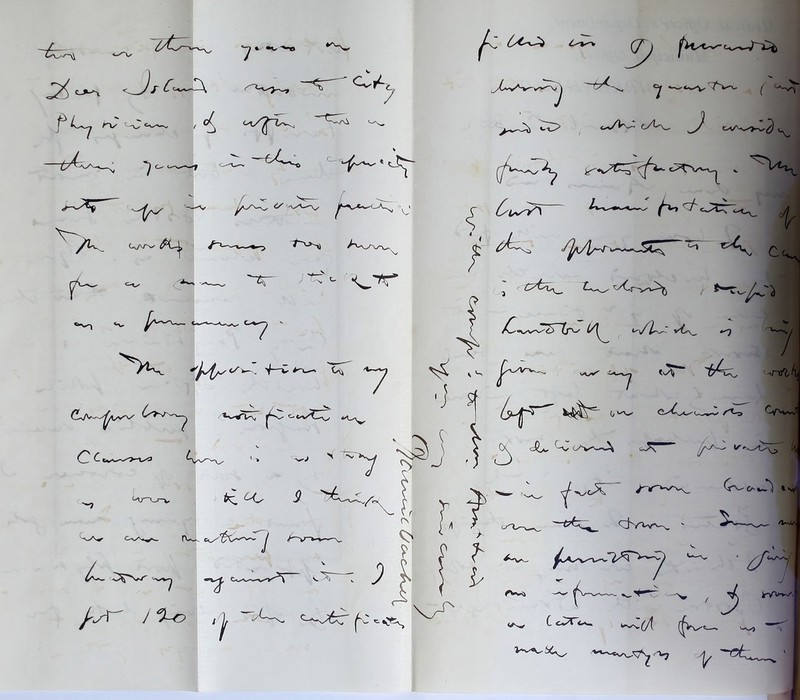 two or three years on
Deer Island rises to City
Physician, & after two or
three years in this capacity
sets up in private practice
The work seems too
for a man to stick to
as a permanency.
The opposition to my
compulsory notification
clauses here is as strong
as ever still I think
we are making some
headway against it. I
got 120 of the certificates
filled in & forwarded
during the quarter just
ended, which I consider
fairly satisfactory. The
last manifestation of
the opponents to the
is the enclosed stupid
handbill, which is being
given away at the works
left on chemists
& delivered at private
- in fact sown broadcast
over the town. Some men
are persisting in giving
no information, & sooner
or later will force us to
make martyrs of them
with comp.ts to
Yours very sincerely